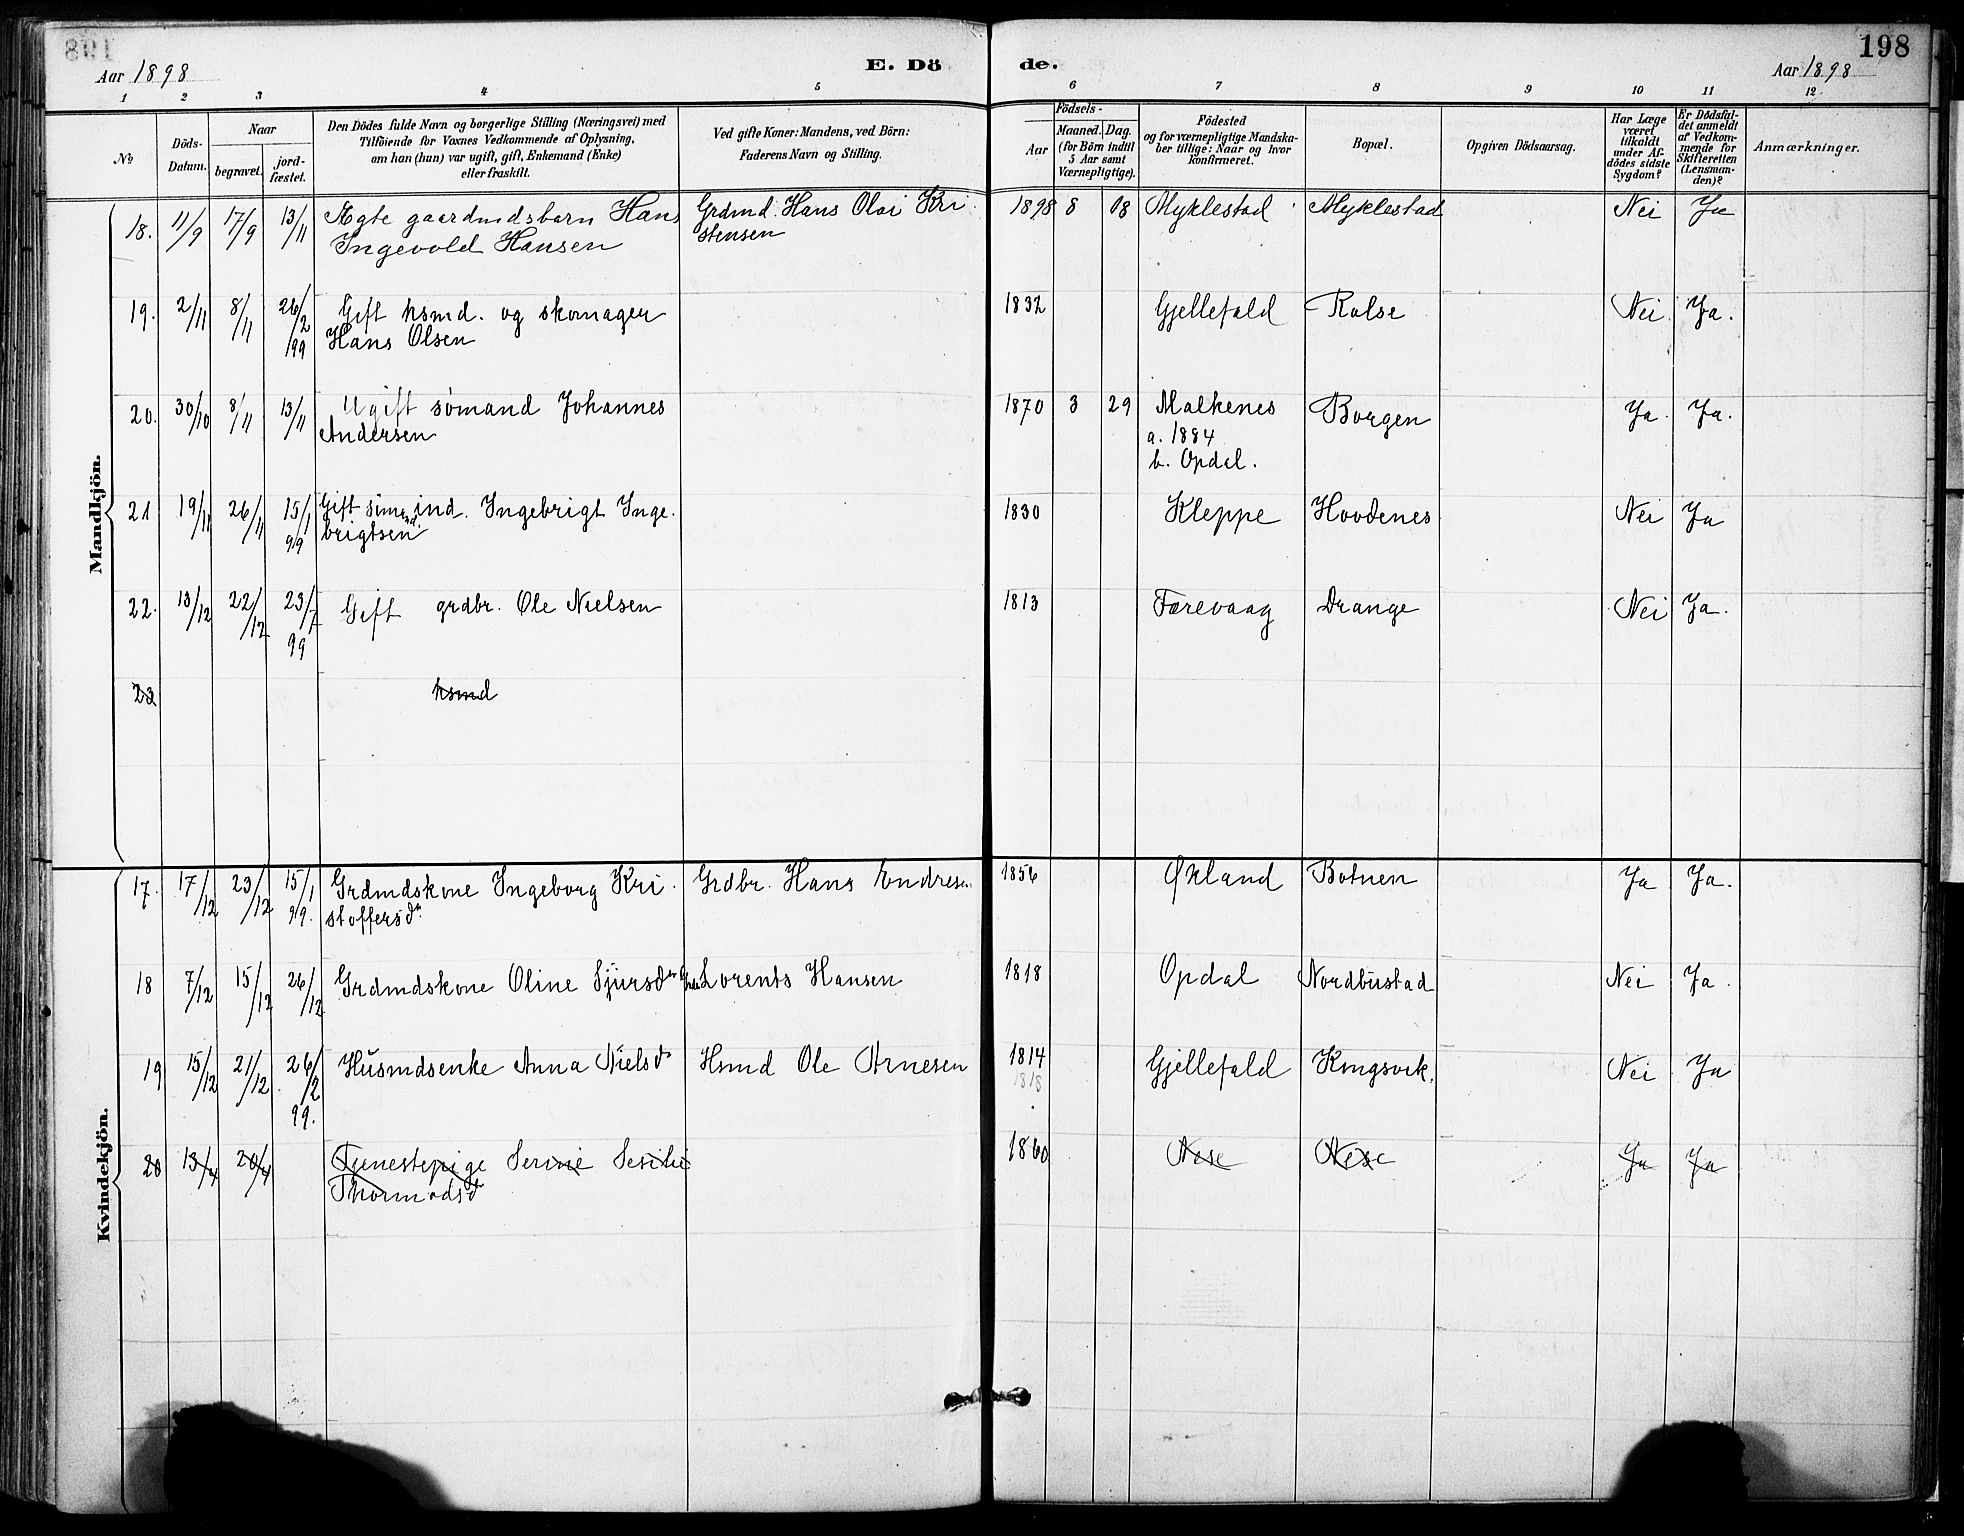 198
Aar 1898
E. Dö
de.
Aar 1898
1 2 3 4 5 6 7 8 9 10 11 12.
No
Döds-Datum.
Naar
begravet.
jord-fæstet.
Den Dödes fulde Navn og borgerlige Stilling (Næringsvei) med
Tilföiende for Voxnes Vedkommende af Oplysning,
om han (hun) var ugift, gift, Enkemand (Enke)
eller fraskilt.
Ved gifte Koner: Mandens, ved Börn:
Faderens Navn og Stilling.
Födsels-
Aar
Maaned. Dag.
(for Börn indtil
5 Aar samt
Værnepligtige).
Födested
og for værnepligtige Mandska-
ber tillige: Naar og hvor
konfirmeret.
Bopæl.
Opgiven Dödsaarsag.
Har Læge
været
tilkaldt
under Af-
dödes sidste
Sygdom?
Er Dödsfal-
det anmeldt
af Vedkom-
mende for
Skifteretten
(Lensman-
den)?
Anmærkninger.
Mandkjön.
18. 11/9 17/9 13/11 Ægte gaardmdsbarn Hans Grdmd. Hans Olai Kri 1898 8 08 Myklestad Myklestad Nei Ja
Ingevold Hansen stensen
19. 2/11 8/11 26/2 Gift hsmd. og skomager 1832 Gjellefald Rolse Nei Ja.
/99 Hans Olsen
20. 30/10 8/11 13/11 Ugift sømand Johannes 1870 3 29 Malkenes Borgen Ja. Ja.
Andersen a. 1884
b. Opdal.
21 19/11 26/11 15/1 Gift ind. Ingebrigt Inge. 1830 Kleppe Hovdenes Nei Ja
99 brigtsen
22. 13/12 22/12 23/7 Gift grdbr. Ole Nielsen 1813 Færevaag Drange Nei Ja.
99
23 hsmd
Kvindekjön.
17. 17/12 23/12 15/1 Grdmdskone Ingeborg Kri. Grdbr. Hans Endresen 1856 Økland Botnen Ja Ja.
99. stoffersdr.
18 7/12 15/12 26/12 Grdmdskone Oline Sjursdr Lorents Hansen 1818 Opdal Nordbustad Nei Ja.
19 15/12 21/12 26/2 Husmdsenke Anna Nielsd Hsmd Ole Arnesen 1814 Gjellefald Kongsvik. Nei Ja
99. 1818
20 13/4 20/4 Tjenestepige Serine Sesilie 1860 Nese Nese Ja Ja
Thormodsd